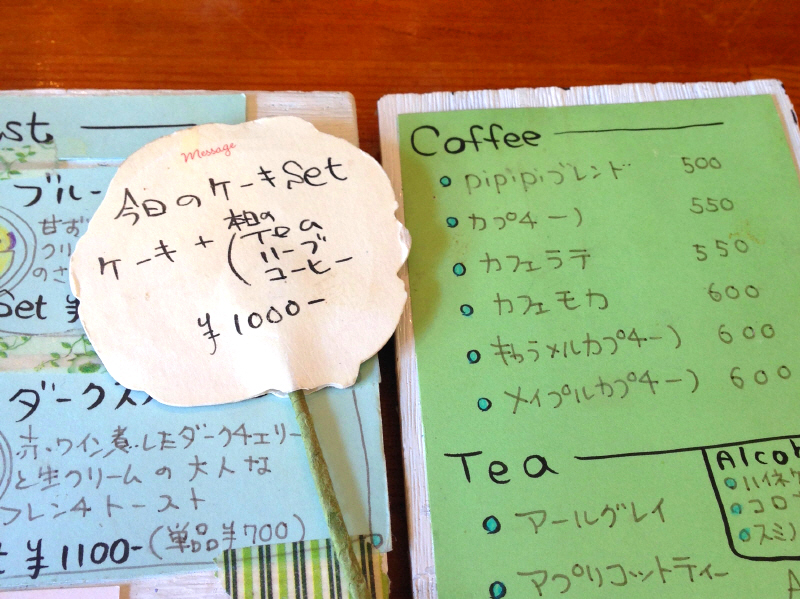 ブルー
甘ず
クリ
のさ
Set ¥
Message
今日のケーキSet
ケーキ + (本日の
Tea
ハーブ
コーヒー
¥1000-
ダークス
赤ワイン煮したダークチェリー
と生クリームの大人な
フレンチトースト
¥1100-(単品¥700)
Coffee
pipipiブレンド 500
カプチーノ 550
カフェラテ 550
カフェモカ 600
キャラメルカプチーノ 600
メイプルカプチーノ 600
Tea
アールグレイ
アプリコットティー
Alcoh
ハイネケ
コロナ
スミノ